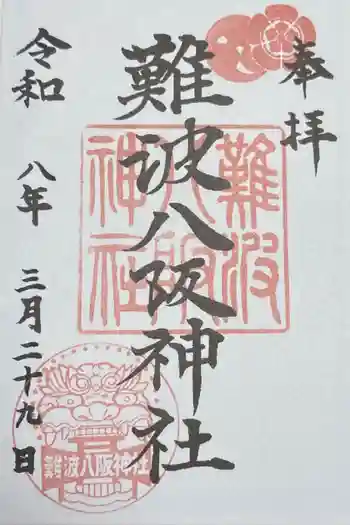 奉拝
難波八阪神社
令和 八年 三月二十九日
難波
八阪
神社
難波八阪神社